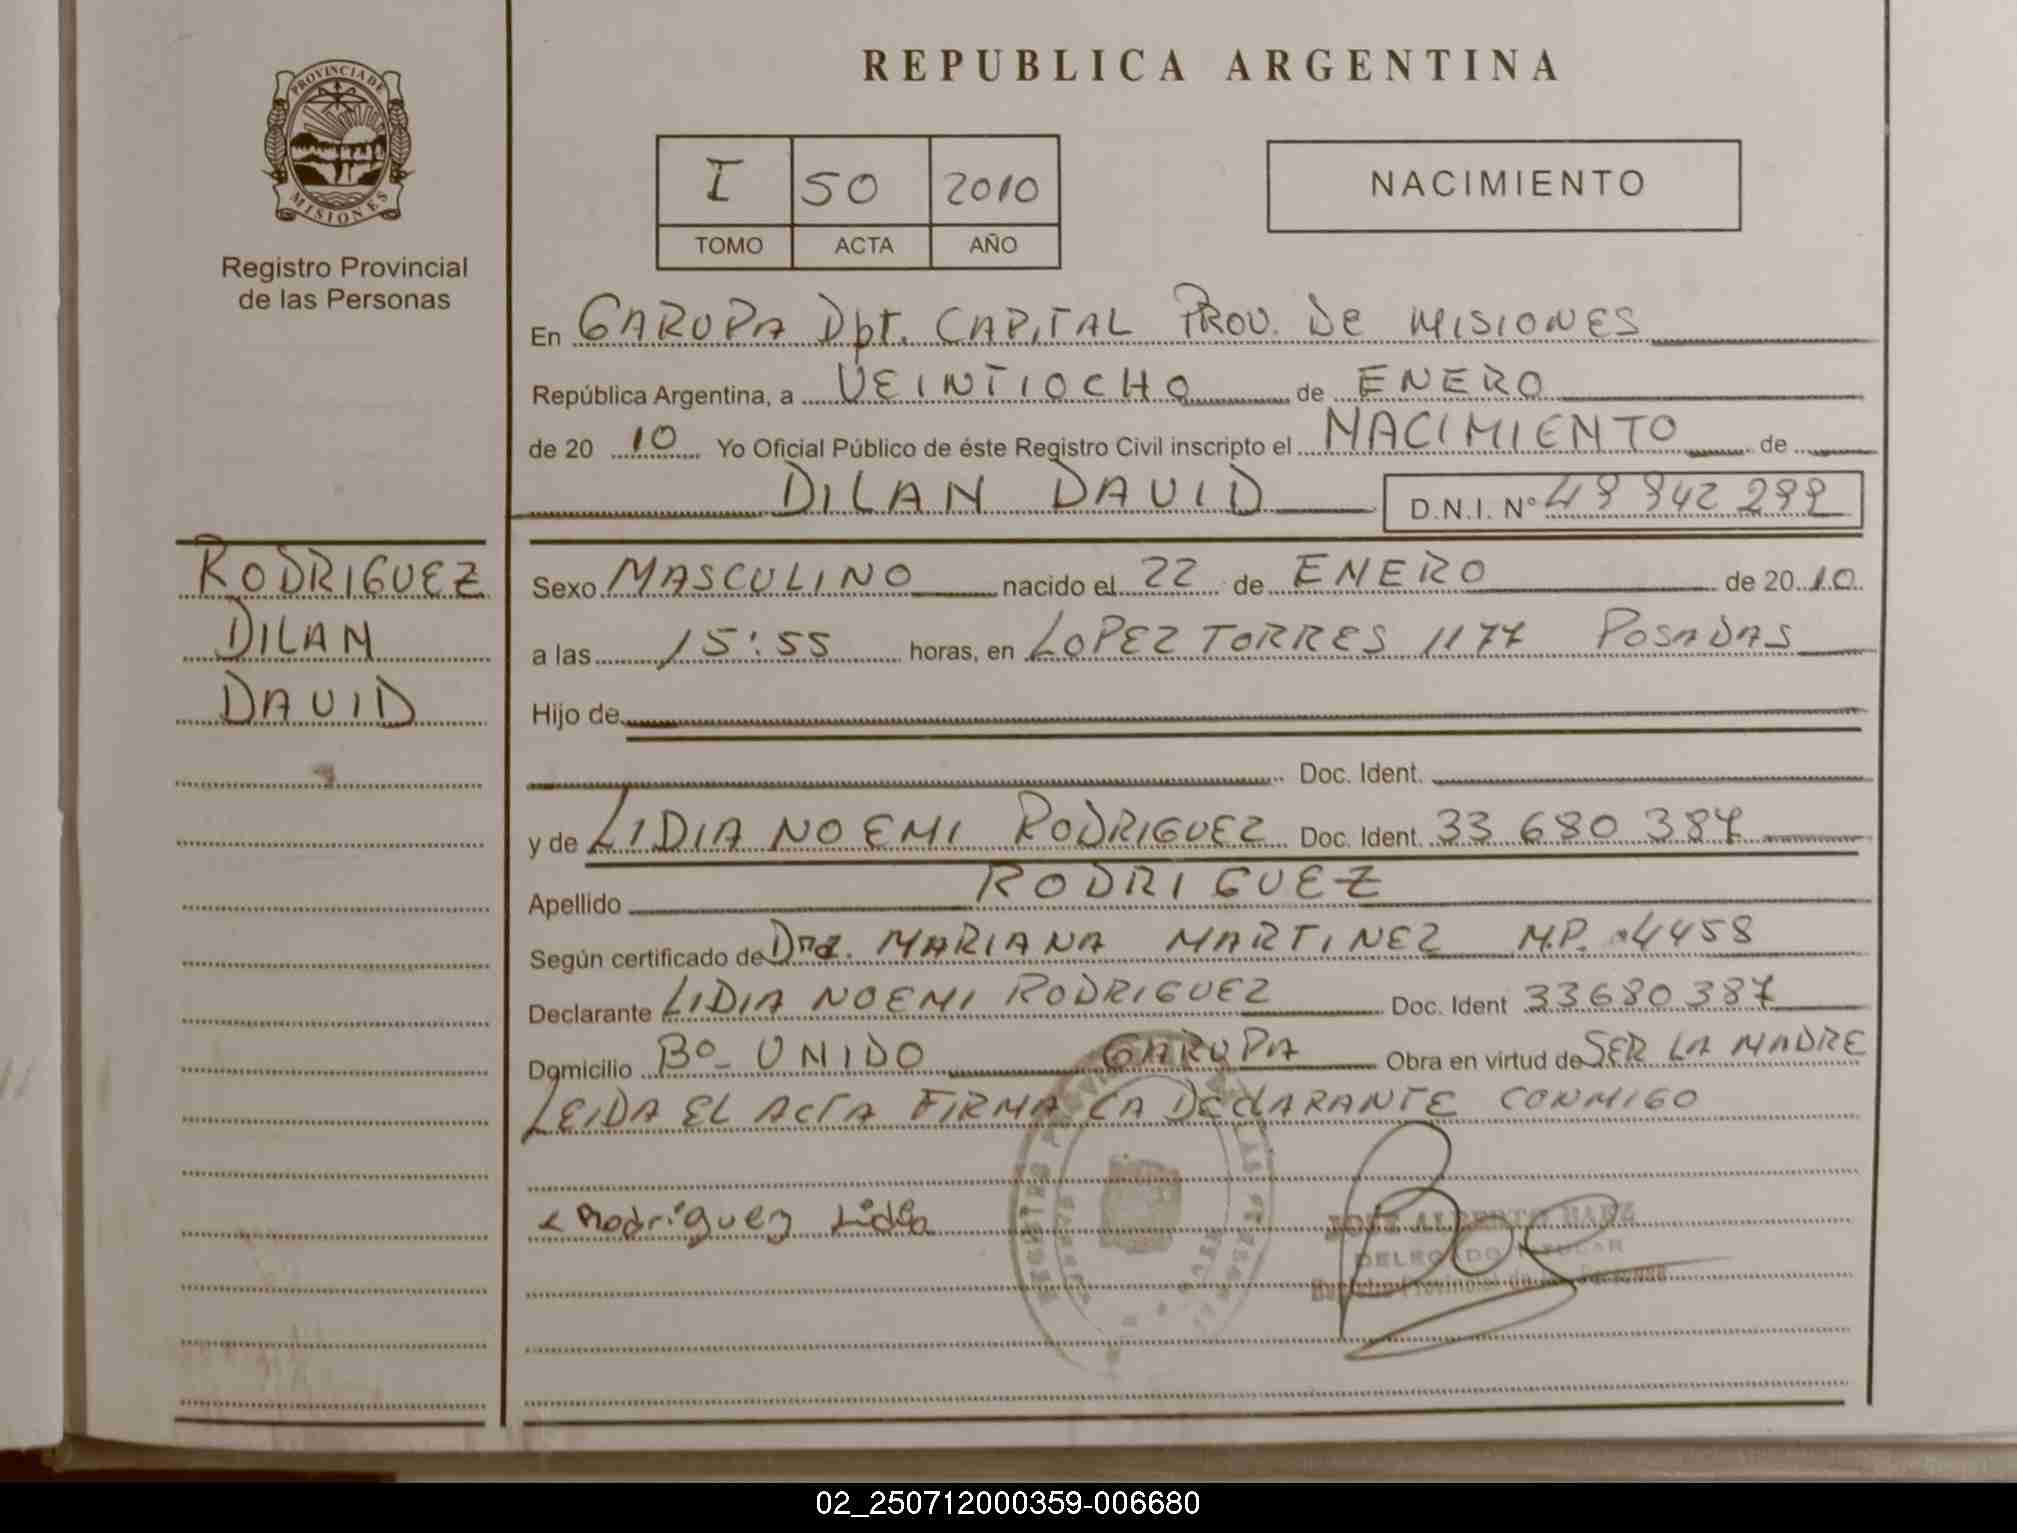 PROVINCIA DE
MISIONES
Registro Provincial
de las Personas
RODRIGUEZ
DILAN
DAVID
REPUBLICA ARGENTINA
I 50 2010
TOMO ACTA AÑO
NACIMIENTO
En GARUPA Dpt. CAPITAL PROV. De MISIONES
República Argentina, a VEINTIOCHO de ENERO
de 20 10 Yo Oficial Público de éste Registro Civil inscripto el NACIMIENTO de
DILAN DAVID D.N.I. Nº
Sexo MASCULINO nacido el 22 de ENERO de 20 10
a las 15:55 horas, en LOPEZ TORRES 1177 POSADAS
Hijo de
Doc. Ident.
y de LIDIA NOEMI RODRIGUEZ Doc. Ident. 33 680 387
Apellido RODRIGUEZ
Según certificado de Dra. MARIANA MARTINEZ M.P. 4458
Declarante LIDIA NOEMI RODRIGUEZ Doc. Ident 33680387
Domicilio Bº UNIDO GARUPA Obra en virtud de SER LA MADRE
LEIDA EL ACTA FIRMA LA DeclARANTE CONMIGO
Rodriguez Lidia
JOSE ALBERTO BAEZ
DELEGADO TITULAR
Registro Provincial de las Personas
02_250712000359-006680